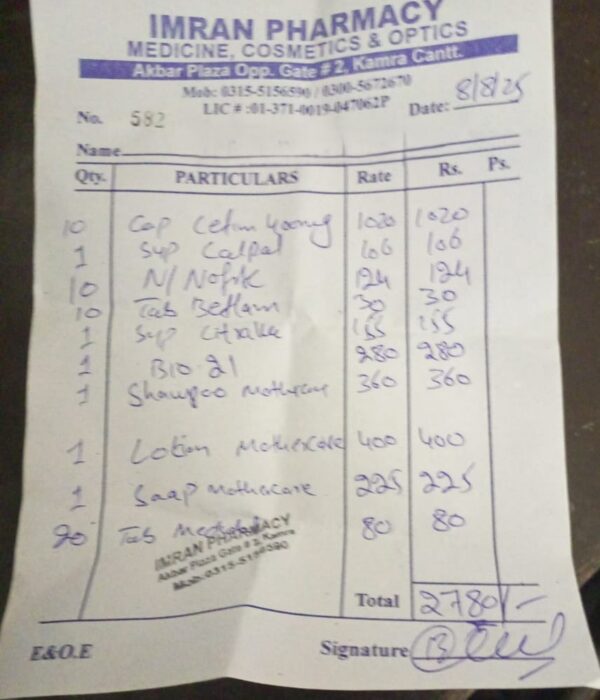 IMRAN PHARMACY
MEDICINE, COSMETICS & OPTICS
Akbar Plaza Opp. Gate # 2, Kamra Cantt.
Mob: 0315-5156590 / 0300-5672670
LIC # :01-371-0019-047062P
No. 582 Date: 8/8/25
Name
Qty. PARTICULARS Rate Rs. Ps.
10 Cap 400mg 1020 1020
1 Syp Calpol 106 106
10 N/ 124 124
10 Tab 30 30
1 Syp 155 155
1 Bio-21 280 280
1 Shampoo Mothercare 360 360
1 Lotion Mothercare 400 400
1 Saap Mothercare 225 225
20 Tab 80 80
IMRAN PHARMACY
Akbar Plaza Gate # 2, Kamra
Mob: 0315-5156590
Total 2780/-
E&O.E Signature